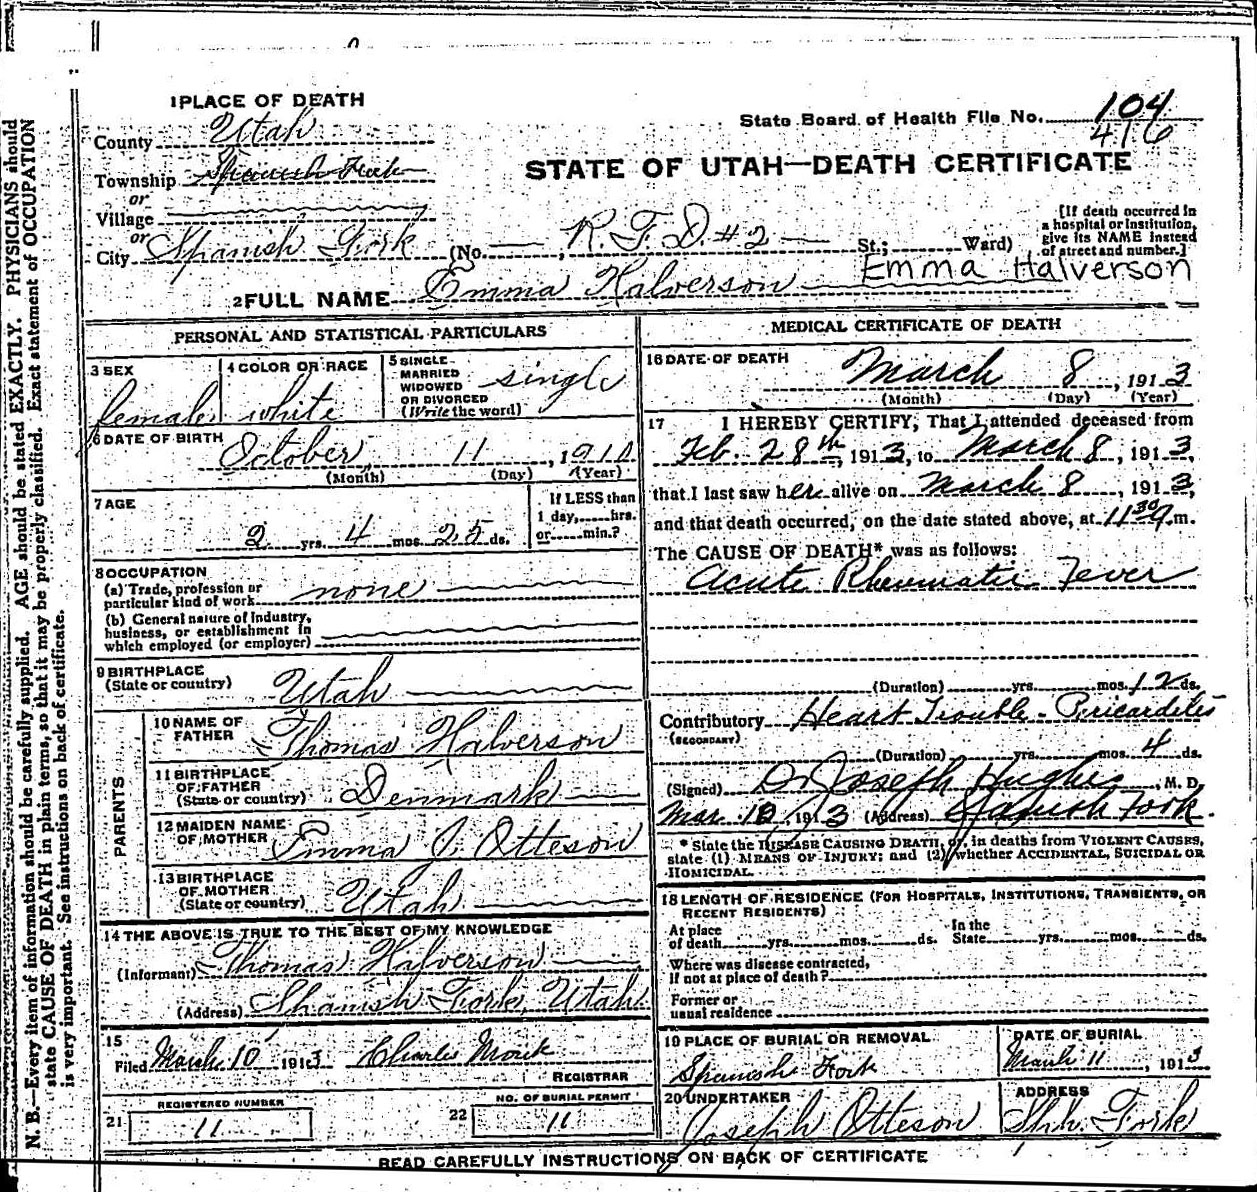 1 PLACE OF DEATH
County Utah
State Board of Health File No. 104
416
Township Spanish Fork
or
Village
or
City Spanish Fork (No. R.F.D. #2 St.; Ward)
STATE OF UTAH—DEATH CERTIFICATE
[If death occurred in
a hospital or institution,
give its NAME instead
of street and number.]
Emma Halverson
2 FULL NAME Emma Halverson
PERSONAL AND STATISTICAL PARTICULARS
3 SEX
female
4 COLOR OR RACE
white
5 SINGLE
MARRIED
WIDOWED
OR DIVORCED
(Write the word)
single
6 DATE OF BIRTH
October 11, 1910
(Month) (Day) (Year)
7 AGE
2 yrs. 4 mos. 25 ds.
If LESS than
1 day, hrs.
or min.?
8 OCCUPATION
(a) Trade, profession or
particular kind of work none
(b) General nature of industry,
business, or establishment in
which employed (or employer)
9 BIRTHPLACE
(State or country) Utah
PARENTS
10 NAME OF
FATHER Thomas Halverson
11 BIRTHPLACE
OF FATHER
(State or country) Denmark
12 MAIDEN NAME
OF MOTHER Emma J. Otteson
13 BIRTHPLACE
OF MOTHER
(State or country) Utah
14 THE ABOVE IS TRUE TO THE BEST OF MY KNOWLEDGE
(Informant) Thomas Halverson
(Address) Spanish Fork, Utah
15
Filed March 10 1913 Charles Monk
REGISTRAR
21 REGISTERED NUMBER
11
22 NO. OF BURIAL PERMIT
11
MEDICAL CERTIFICATE OF DEATH
16 DATE OF DEATH
March 8, 1913
(Month) (Day) (Year)
17 I HEREBY CERTIFY, That I attended deceased from
Feb. 28th, 1913, to March 8, 1913,
that I last saw her alive on March 8, 1913,
and that death occurred, on the date stated above, at 11 30 a m.
The CAUSE OF DEATH* was as follows:
Acute Rheumatic Fever
(Duration) yrs. mos. 12 ds.
Contributory Heart Trouble - Pericarditis
(SECONDARY)
(Duration) yrs. mos. 4 ds.
(Signed) Dr Joseph Hughes, M. D.
Mar. 10, 1913 (Address) Spanish Fork.
* State the DISEASE CAUSING DEATH, or, in deaths from VIOLENT CAUSES,
state (1) MEANS OF INJURY; and (2) whether ACCIDENTAL, SUICIDAL OR
HOMICIDAL.
18 LENGTH OF RESIDENCE (FOR HOSPITALS, INSTITUTIONS, TRANSIENTS, OR
RECENT RESIDENTS)
At place
of death yrs. mos. ds. In the
State yrs. mos. ds.
Where was disease contracted,
if not at place of death?
Former or
usual residence
19 PLACE OF BURIAL OR REMOVAL
Spanish Fork
DATE OF BURIAL
March 11, 1913
20 UNDERTAKER
Joseph Otteson
ADDRESS
Sph. Fork
READ CAREFULLY INSTRUCTIONS ON BACK OF CERTIFICATE
N. B.—Every item of information should be carefully supplied. AGE should be stated EXACTLY. PHYSICIANS should
state CAUSE OF DEATH in plain terms, so that it may be properly classified. Exact statement of OCCUPATION
is very important. See instructions on back of certificate.